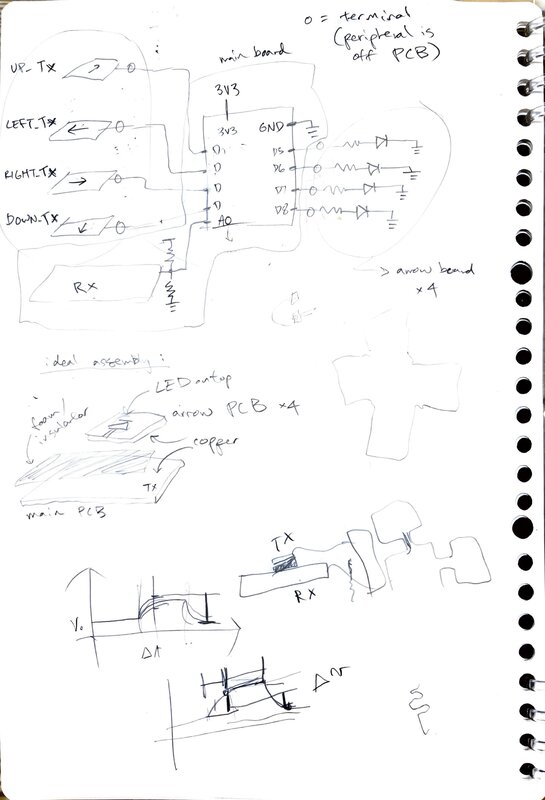 O = terminal
(peripheral is
off PCB)
main board
UP_TX
LEFT_TX
RIGHT_TX
DOWN_TX
3V3
3V3
GND
D1
D
D
D
A0
D5
D6
D7
D8
RX
> arrow board
x4
ideal assembly:
LED on top
arrow PCB x4
foam/
insulator
copper
TX
main PCB
TX
RX
V.
Δt
Δv